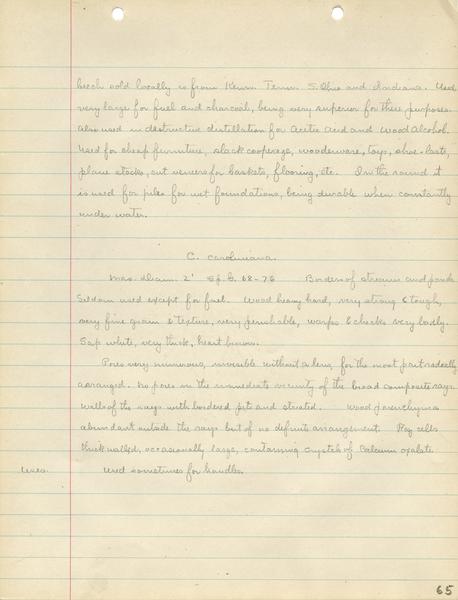 beech sold locally is from Kenn. Tenn. S. Ohio and Indiana. Used
very large for fuel and charcoal, being very superior for these purposes.
Also used in destructive distillation for Acetic Acid and Wood Alcohol.
Used for cheap furniture, slack cooperage, woodenware, toys, shoe-lasts,
plane stocks, cut veneers for baskets, flooring, etc. In the round it
is used for piles for wet foundations, being durable when constantly
under water.
C. caroliniana.
Max. diam. 2' Sp. G. 68-76 Borders of streams and ponds
Seldom used except for fuel. Wood heavy, hard, very strong & tough,
very fine grain & texture, very perishable, warps & checks very badly.
Sap white, very thick, heart brown.
Pores very numerous, invisible without a lens, for the most part radially
arranged. No pores in the immediate vicinity of the broad composite rays.
Walls of the rays with bordered pits and striated. Wood parenchyma
abundant outside the rays but of no definite arrangement. Ray cells
thick walled, occasionally large, containing crystals of Calcium oxalate.
Uses. Used sometimes for handles.
65